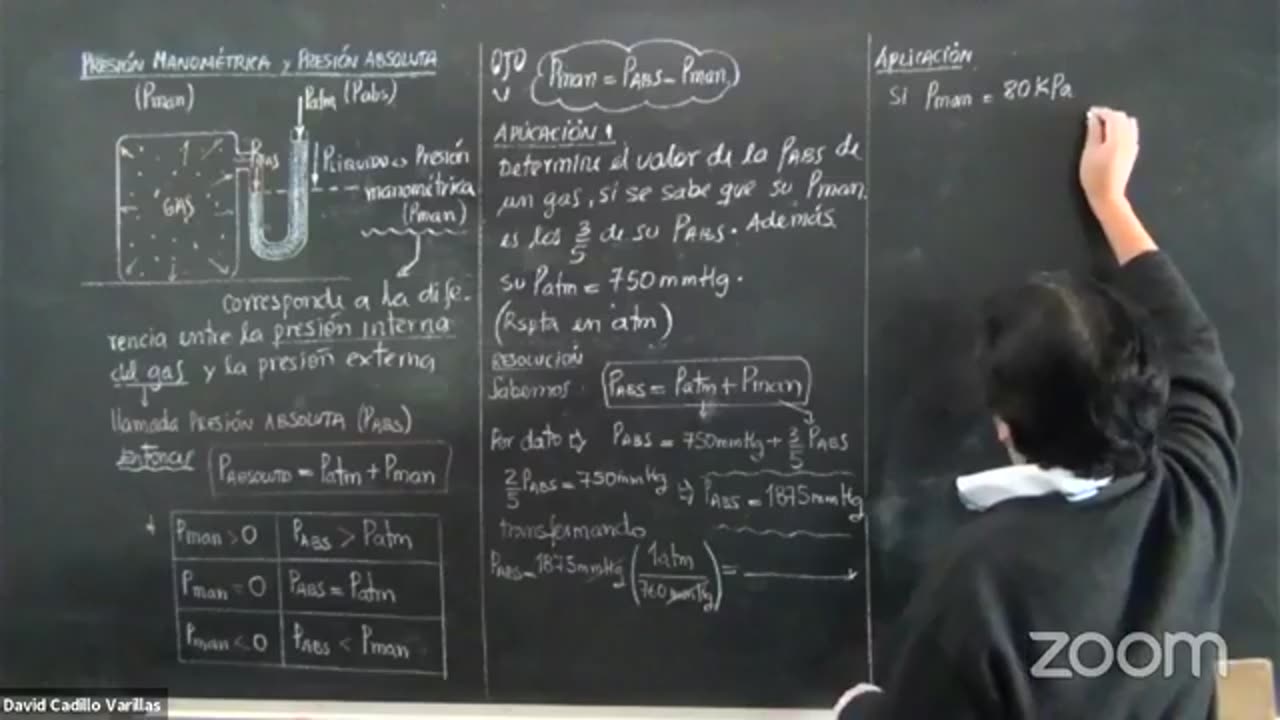 PRESIÓN MANOMÉTRICA y PRESIÓN ABSOLUTA
(Pman)
Patm (Pabs)
PABS
GAS
PLIQUIDO <> Presión
manométrica
(Pman)
corresponde a la dife-
rencia entre la presión interna
del gas y la presión externa
llamada PRESIÓN ABSOLUTA (PABS)
Entonces PABSOLUTO = Patm + Pman
Pman > 0 PABS > Patm
Pman = 0 PABS = Patm
Pman < 0 PABS < Pman
OJO
Pman = PABS - Pman
APLICACIÓN 1
Determine el valor de la PABS de
un gas, si se sabe que su Pman
es los 3/5 de su PABS. Además
su Patm = 750 mmHg.
(Rspta en atm)
RESOLUCIÓN
Sabemos PABS = Patm + Pman
Por dato ⇨ PABS = 750mmHg + 3/5 PABS
2/5 PABS = 750mmHg ⇨ PABS = 1875mmHg
transformando
PABS = 1875mmHg (1atm/760mmHg) =
APLICACIÓN
Si Pman = 80KPa
zoom
David Cadillo Varillas